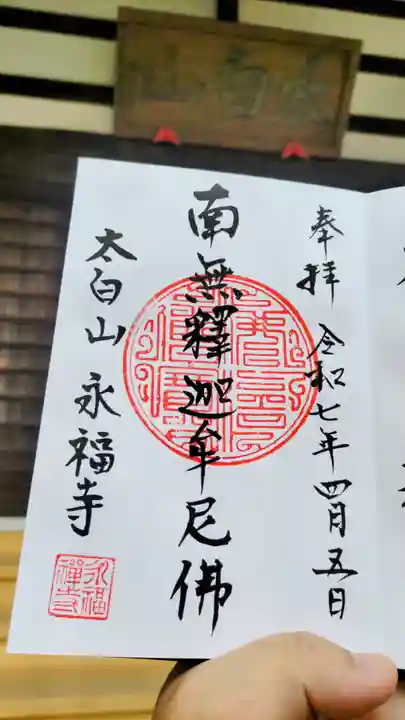 奉拝 令和七年四月五日
南無釋迦牟尼佛
太白山 永福寺
永福禅寺